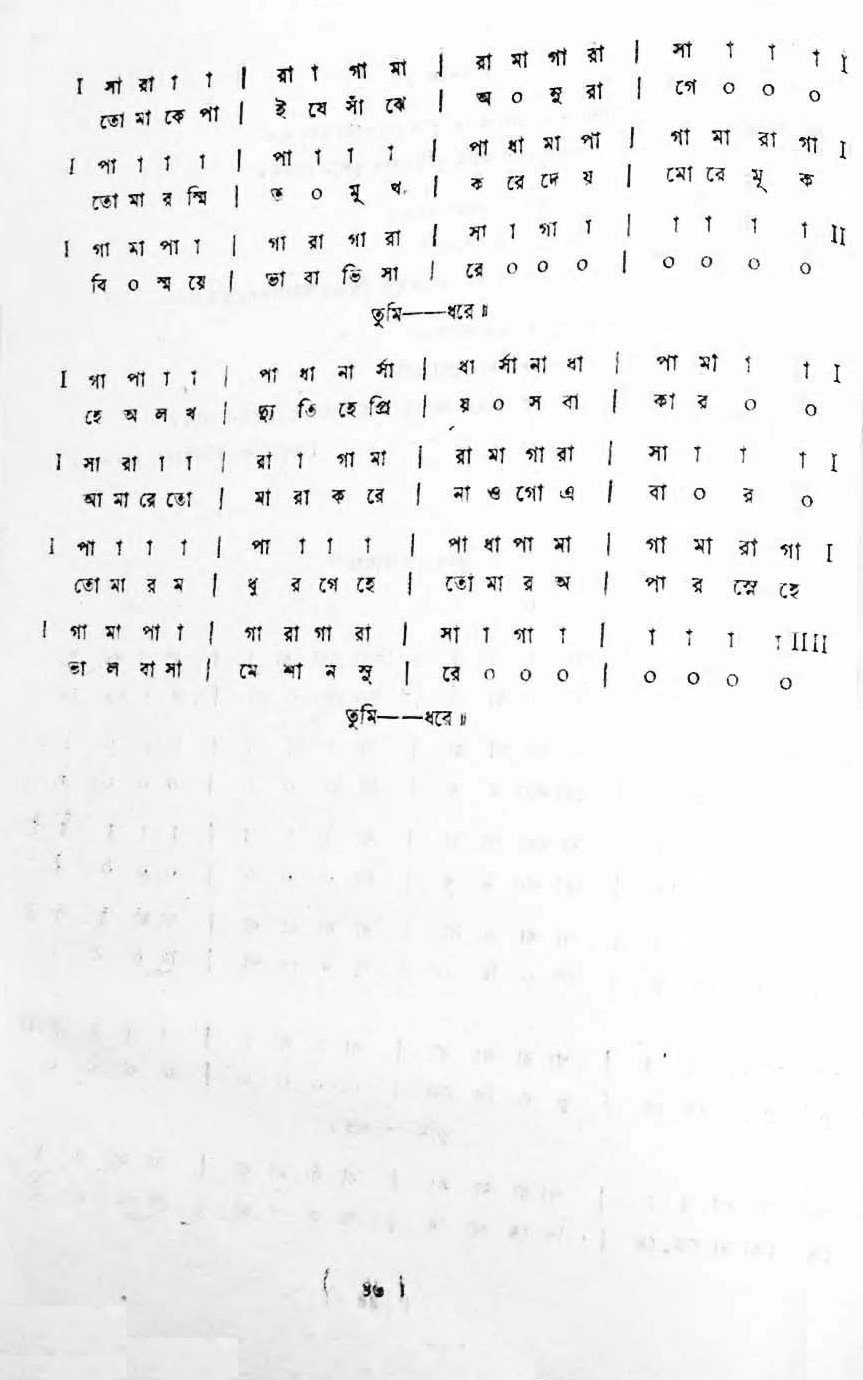 I সা রা া া | রা া গা মা | রা মা গা রা | সা া া া I
তো মা কে পা | ই যে সাঁ ঝে | অ ০ সু রা | গে ০ ০ ০
I পা া া া | পা া া া | পা ধা মা পা | গা মা রা গা I
তো মা র স্মি | ত ০ মূ খ | ক রে দে য় | মো রে মূ ক
I গা মা পা া | গা রা গা রা | সা া গা া | া া া া II
বি ০ স্ম য়ে | ভা বা ভি সা | রে ০ ০ ০ | ০ ০ ০ ০
তুমি——ধরে॥
I গা পা া া | পা ধা না র্সা | ধা র্সা না ধা | পা মা া া I
হে অ ল খ | দ্যু তি হে প্রি | য় ০ স বা | কা র ০ ০
I সা রা া া | রা া গা মা | রা মা গা রা | সা া া া I
আ মা রে তো | মা রা ক রে | না ও গো এ | বা ০ র ০
I পা া া া | পা া া া | পা ধা পা মা | গা মা রা গা I
তো মা র ম | ধু র গে হে | তো মা র অ | পা র স্নে হে
I গা মা পা া | গা রা গা রা | সা া গা া | া া া া IIII
ভা ল বা সা | মে শা ন সু | রে ০ ০ ০ | ০ ০ ০ ০
তুমি——ধরে॥